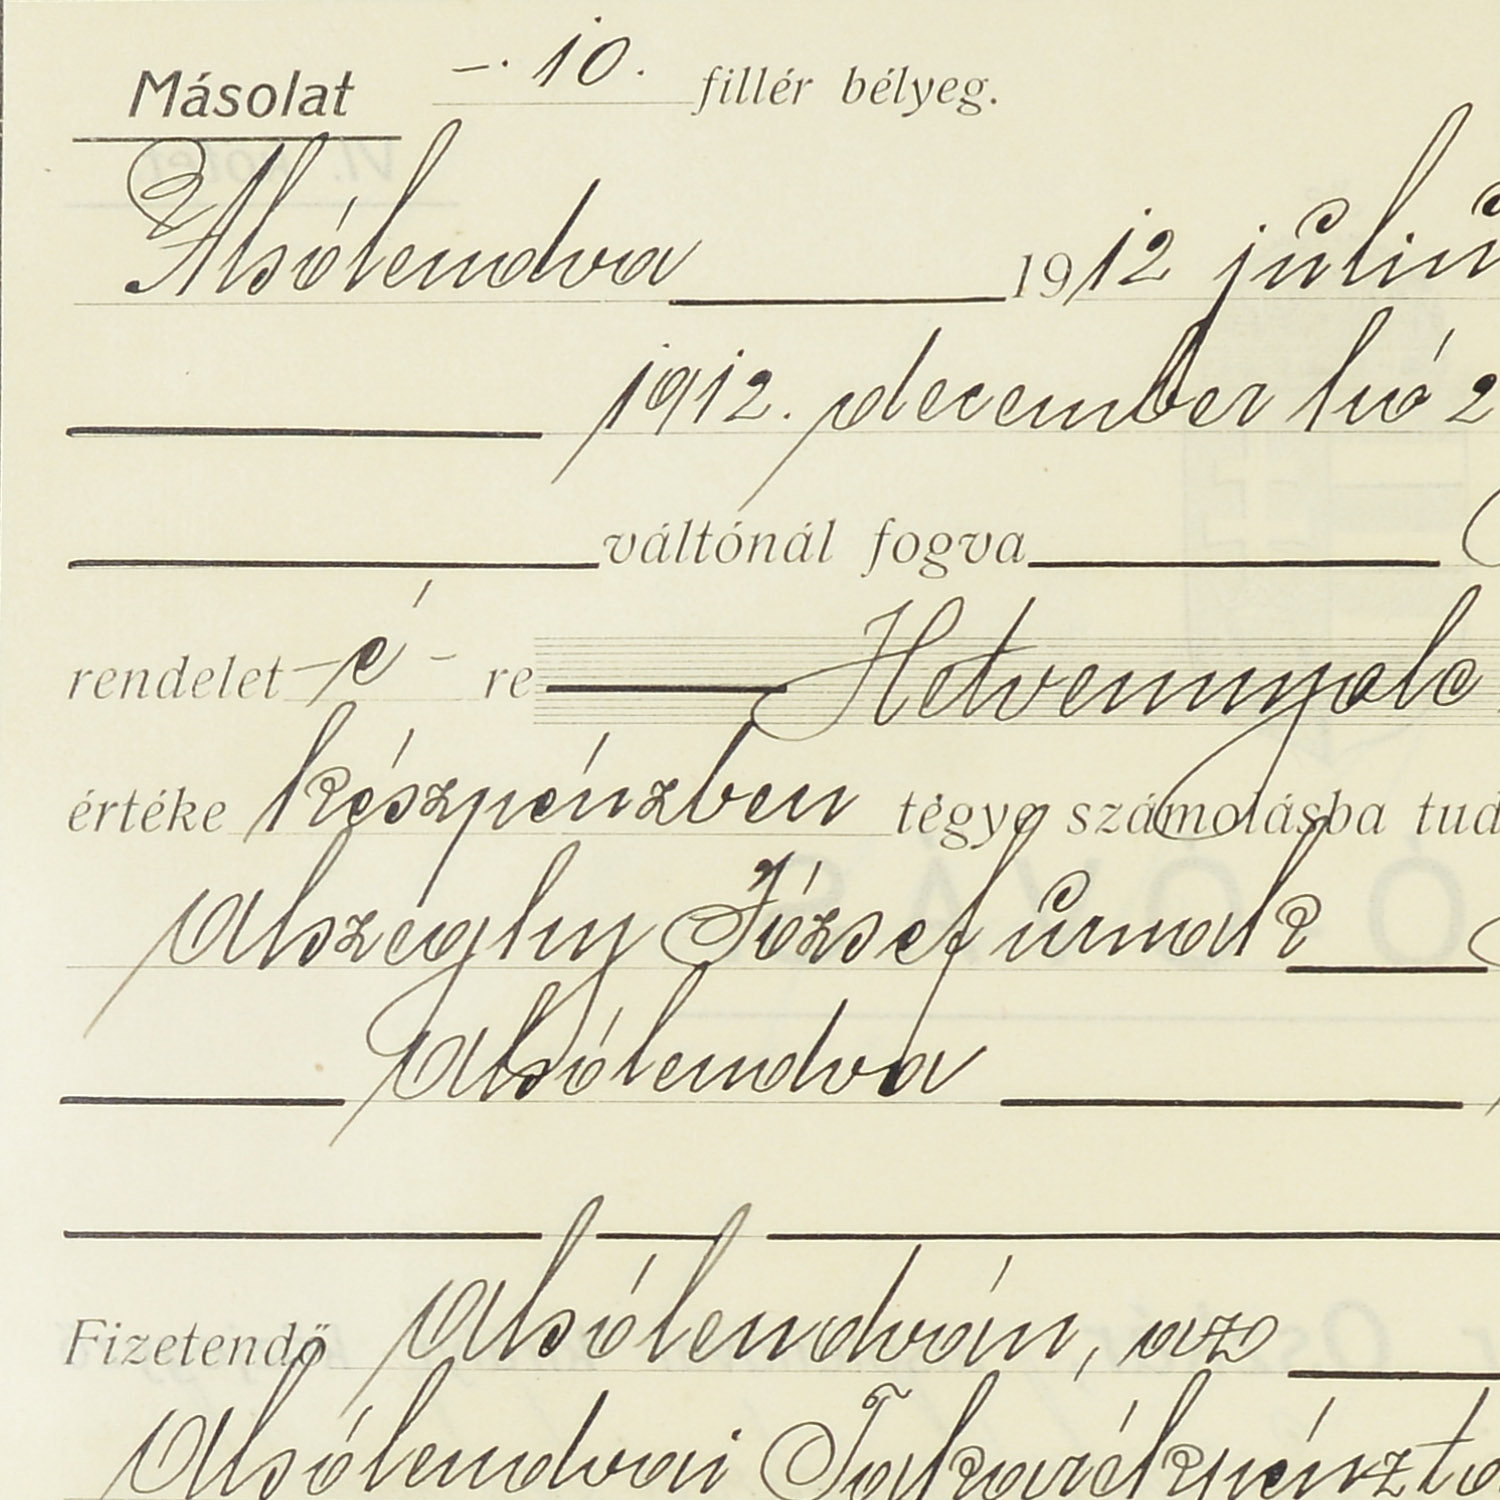 Másolat —. 10. fillér bélyeg.
Alsólendva 1912 július
1912. december hó 2
váltónál fogva
rendelet - é - re Hetvennyolc
értéke készpénzben tegye számolásba tud
Alszeghy József úrnak
Alsólendva
Fizetendő Alsólendván, az
Alsólendvai Takarékpénztá